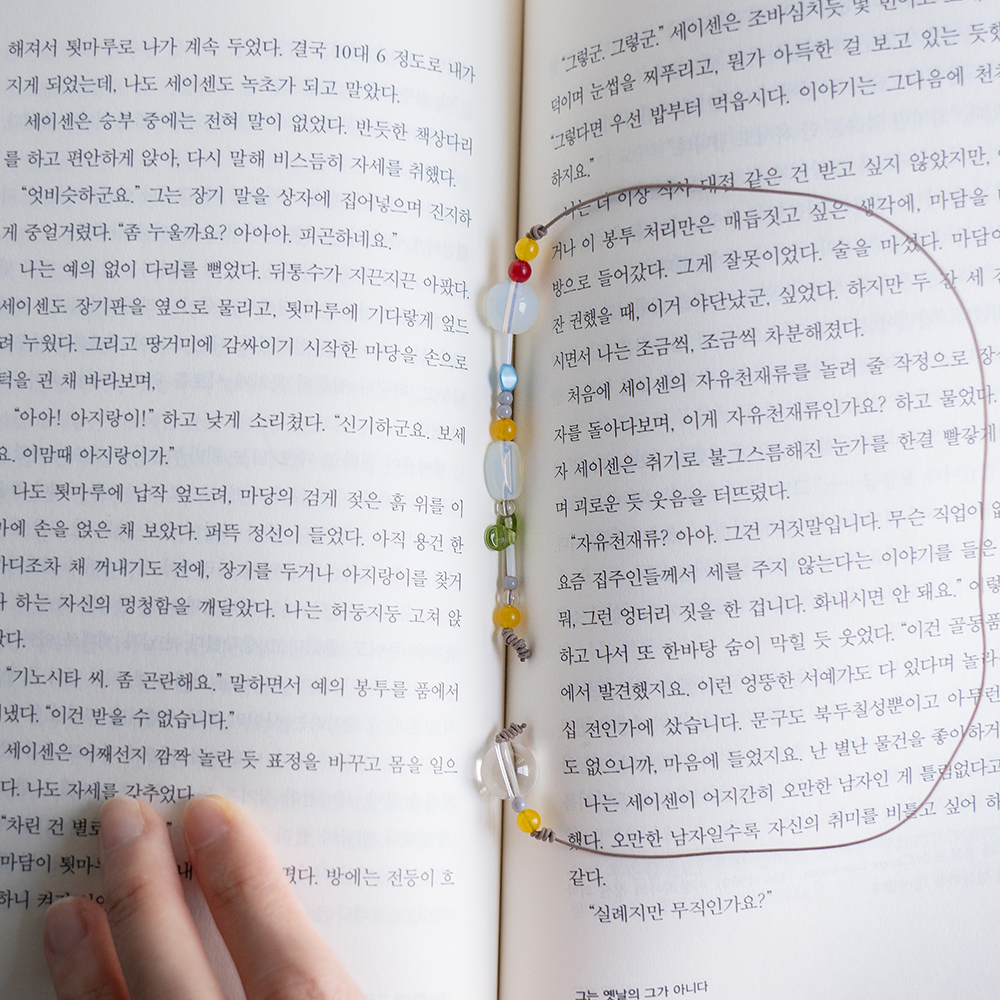 해져서 툇마루로 나가 계속 두었다. 결국 10대 6 정도로 내가
지게 되었는데, 나도 세이센도 녹초가 되고 말았다.
세이센은 승부 중에는 전혀 말이 없었다. 반듯한 책상다리
를 하고 편안하게 앉아, 다시 말해 비스듬히 자세를 취했다.
“엇비슷하군요.” 그는 장기 말을 상자에 집어넣으며 진지하
게 중얼거렸다. “좀 누울까요? 아아아. 피곤하네요.”
나는 예의 없이 다리를 뻗었다. 뒤통수가 지끈지끈 아팠다.
세이센도 장기판을 옆으로 물리고, 툇마루에 기다랗게 엎드
려 누웠다. 그리고 땅거미에 감싸이기 시작한 마당을 손으로
턱을 괸 채 바라보며,
“아아! 아지랑이!” 하고 낮게 소리쳤다. “신기하군요. 보세
요. 이맘때 아지랑이가.”
나도 툇마루에 납작 엎드려, 마당의 검게 젖은 흙 위를 이
마에 손을 얹은 채 보았다. 퍼뜩 정신이 들었다. 아직 용건 한
마디조차 채 꺼내기도 전에, 장기를 두거나 아지랑이를 찾거
나 하는 자신의 멍청함을 깨달았다. 나는 허둥지둥 고쳐 앉
았다.
“기노시타 씨. 좀 곤란해요.” 말하면서 예의 봉투를 품에서
냈다. “이건 받을 수 없습니다.”
세이센은 어째선지 깜짝 놀란 듯 표정을 바꾸고 몸을 일으
다. 나도 자세를 갖추었다.
“차린 건 별로
마담이 툇마루 내 켰다. 방에는 전등이 흐
하니
“그렇군. 그렇군.” 세이센은 조바심치듯 몇 번이고
덕이며 눈썹을 찌푸리고, 뭔가 아득한 걸 보고 있는 듯했
“그렇다면 우선 밥부터 먹읍시다. 이야기는 그다음에 천천
하지요.”
나는 더 이상 식사 대접 같은 건 받고 싶지 않았지만,
거나 이 봉투 처리만은 매듭짓고 싶은 생각에, 마담을
방으로 들어갔다. 그게 잘못이었다. 술을 마셨다. 마담이
잔 권했을 때, 이거 야단났군, 싶었다. 하지만 두 잔 세 잔
시면서 나는 조금씩, 조금씩 차분해졌다.
처음에 세이센의 자유천재류를 놀려 줄 작정으로 장
자를 돌아다보며, 이게 자유천재류인가요? 하고 물었다.
자 세이센은 취기로 불그스름해진 눈가를 한결 빨갛게
며 괴로운 듯 웃음을 터뜨렸다.
“자유천재류? 아아. 그건 거짓말입니다. 무슨 직업이 없
요즘 집주인들께서 세를 주지 않는다는 이야기를 들은
뭐, 그런 엉터리 짓을 한 겁니다. 화내시면 안 돼요.” 이렇
하고 나서 또 한바탕 숨이 막힐 듯 웃었다. “이건 골동품
에서 발견했지요. 이런 엉뚱한 서예가도 다 있다며 놀라
십 전인가에 샀습니다. 문구도 북두칠성뿐이고 아무런
도 없으니까, 마음에 들었지요. 난 별난 물건을 좋아하거
나는 세이센이 어지간히 오만한 남자인 게 틀림없다고
했다. 오만한 남자일수록 자신의 취미를 비틀고 싶어 하
같다.
“실례지만 무직인가요?”
그는 옛날의 그가 아니다